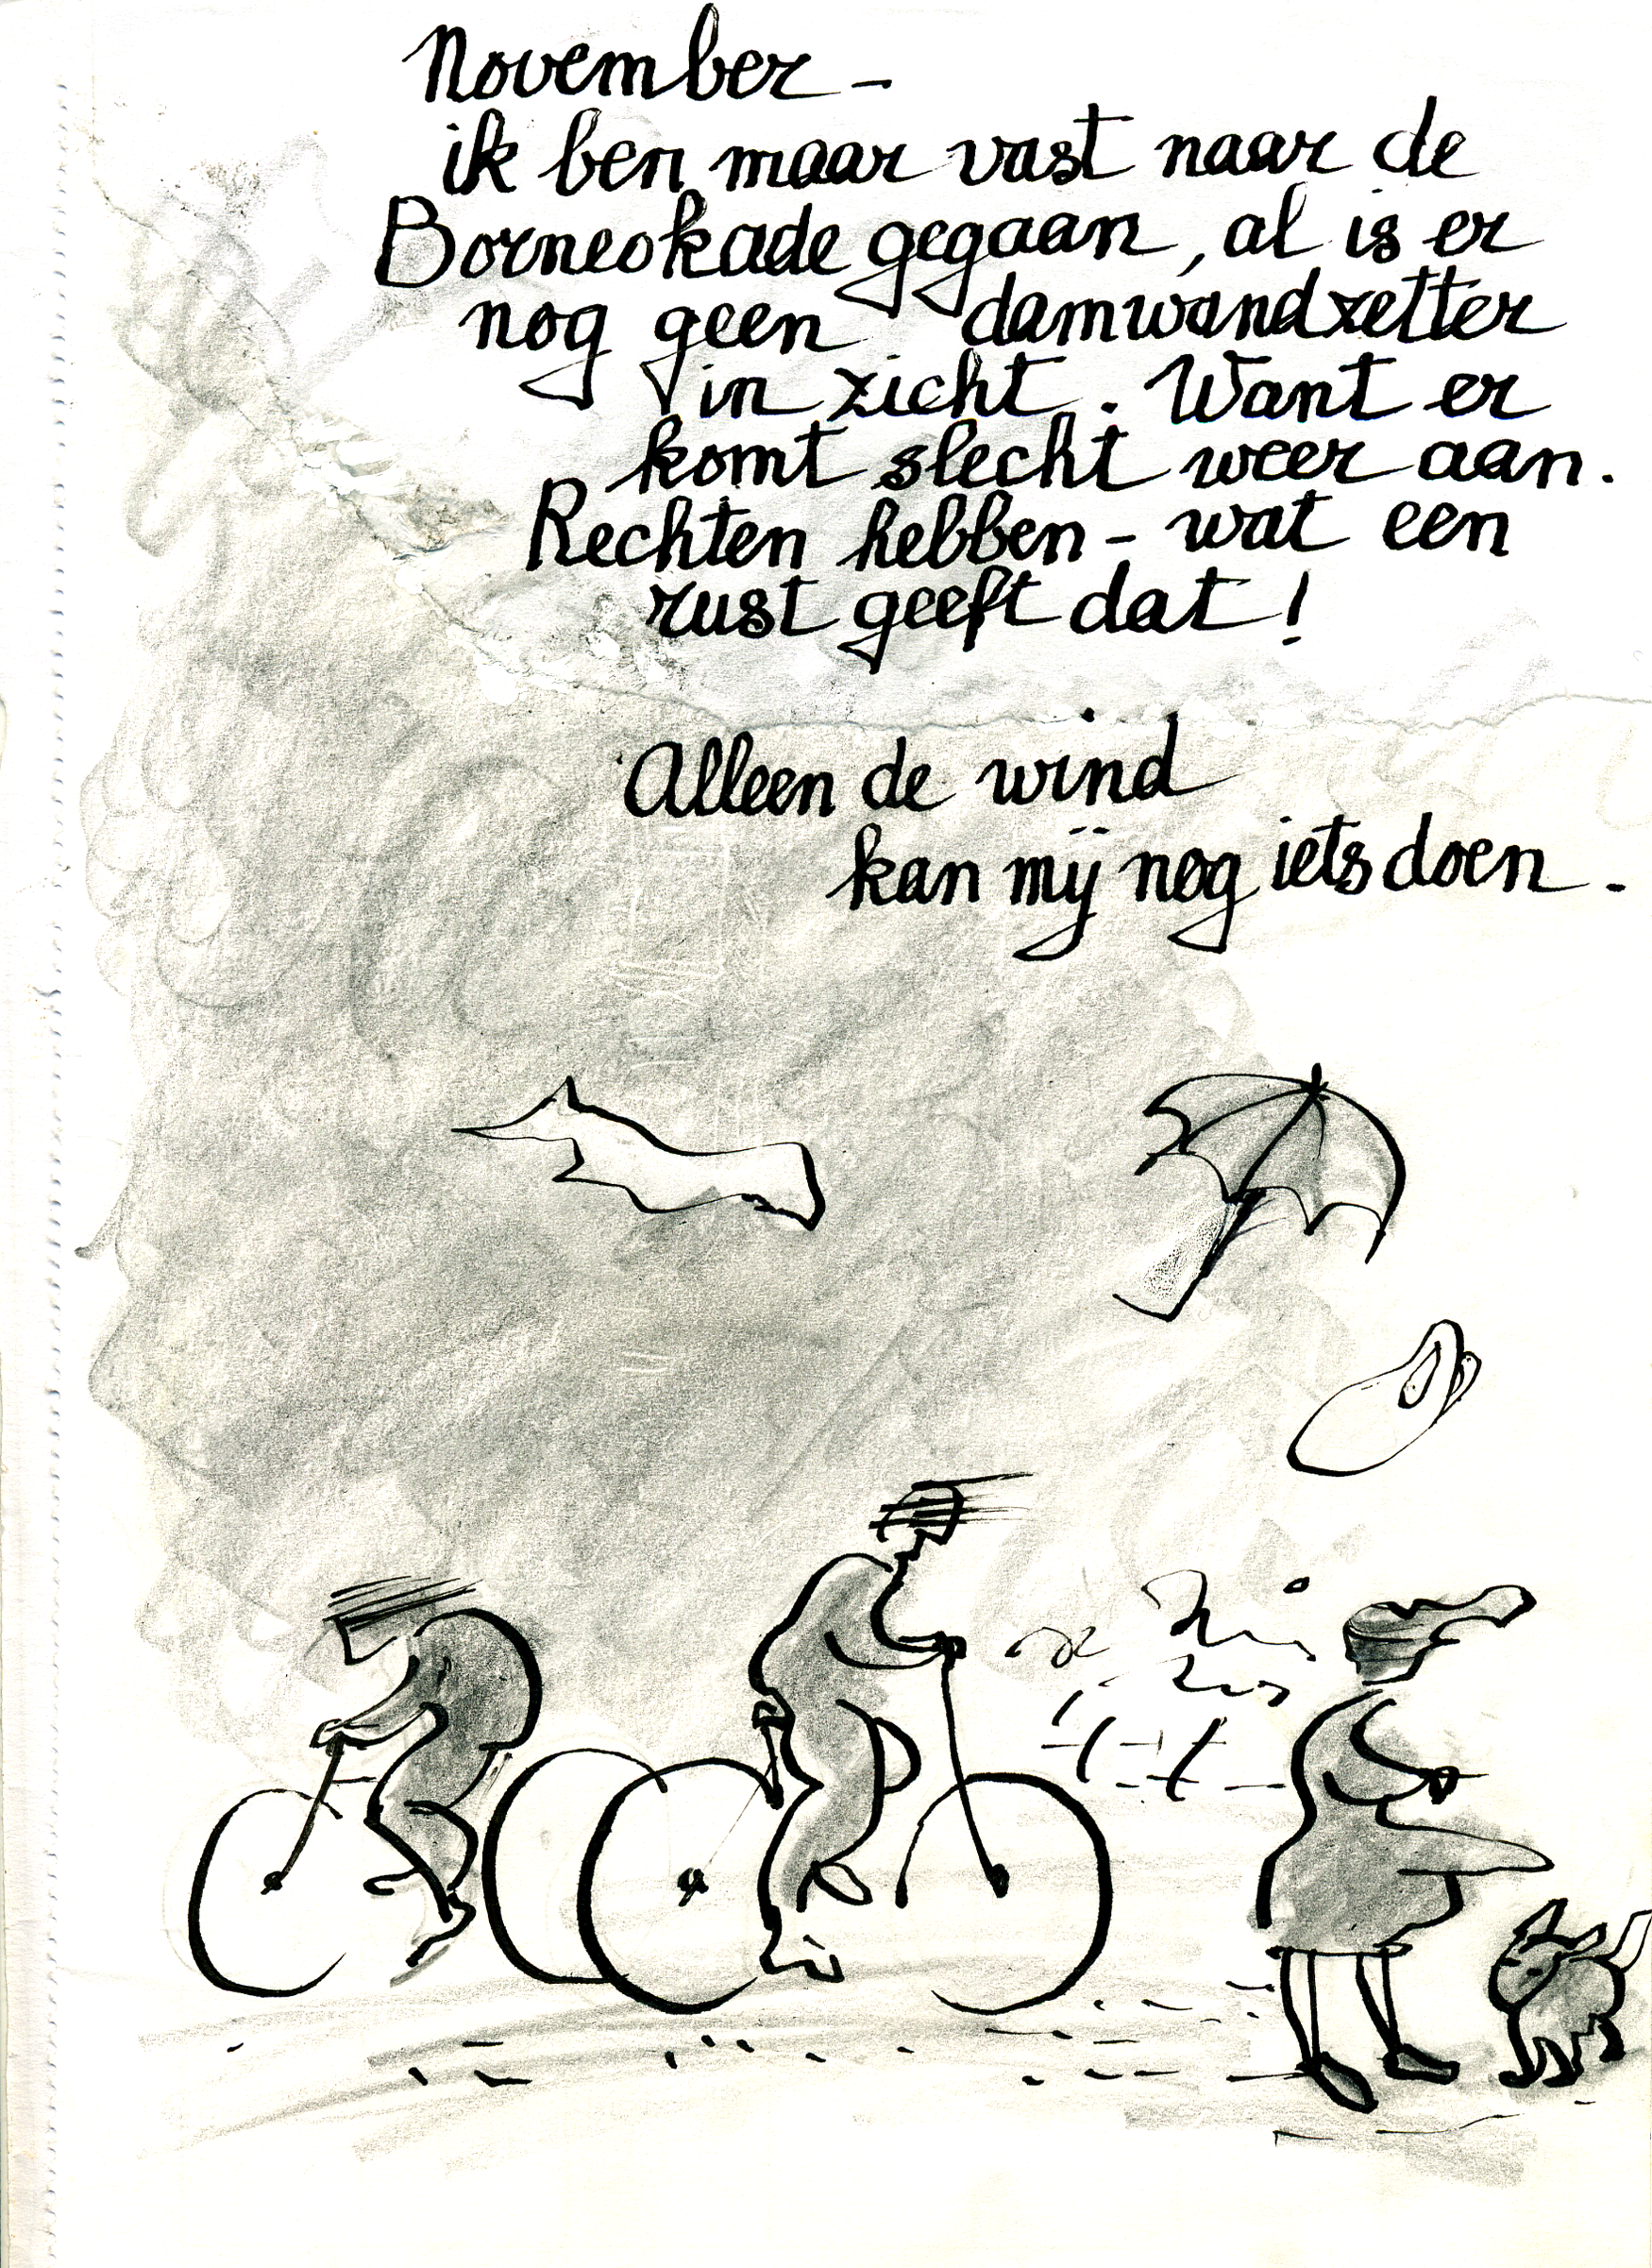 November -
ik ben maar vast naar de
Borneokade gegaan, al is er
nog geen damwandzetter
in zicht. Want er
komt slecht weer aan.
Rechten hebben - wat een
rust geeft dat!
Alleen de wind
kan mij nog iets doen.